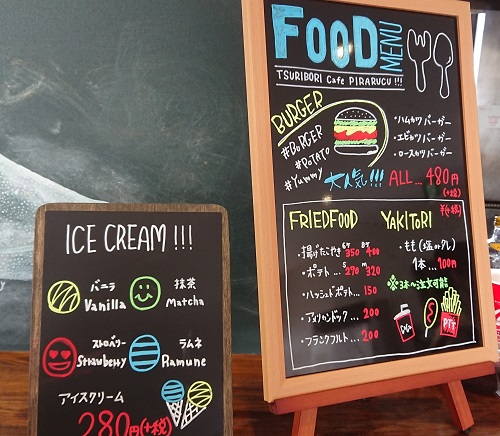 FOOD MENU
TSURIBORI Cafe PIRARUCU !!!
BURGER
#BURGER
#POTATO
#Yummy
・ハムカツバーガー
・エビカツバーガー
・ロースカツバーガー
大人気!!!
ALL... 480円
(+税)
FRIEDFOOD
・揚げたこやき 6ケ 350 8ケ 400
・ポテト... S 270 M 320
・ハッシュドポテト... 150
・アメリカンドック... 200
・フランクフルト... 200
YAKITORI
(+税)
・もも(塩orタレ)
1本... 100円
※3本〜注文可能
ICE CREAM !!!
バニラ
Vanilla
抹茶
Matcha
ストロベリー
Strawberry
ラムネ
Ramune
アイスクリーム
280円(+税)